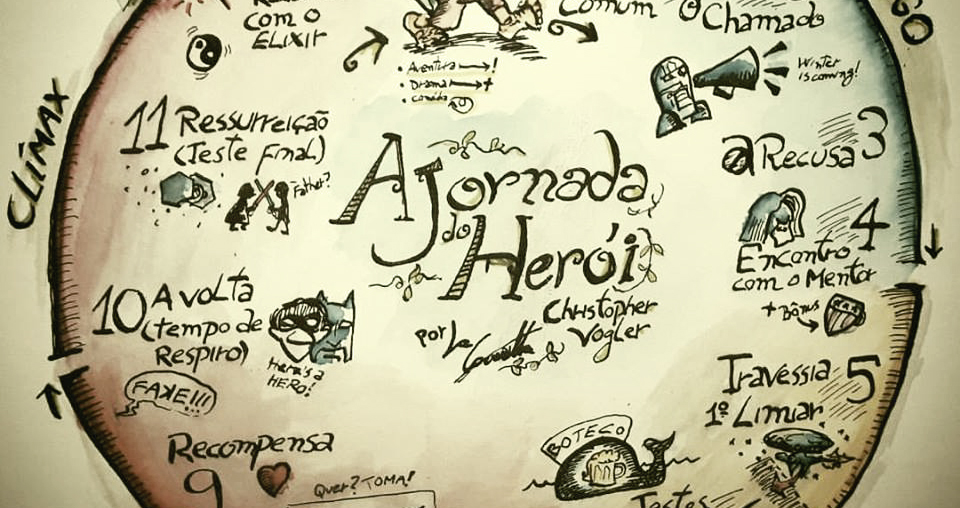 com o
ELIXIR
Comum
O
Chamado
• Aventura → !
• Drama → +
• comida
Winter
is coming!
CLÍMAX
11 Ressurreição
(Teste Final)
Father?
A Jornada
do
Herói
por
Christopher
Vogler
a Recusa 3
4
Encontro
com o Mentor
+ Bônus
10 A volta
(tempo de
Respiro)
Here's a
HERO!
FAKE!!!
Travessia 5
1º Limiar
Recompensa
9
Quer? TOMA!
BOTECO
Testes